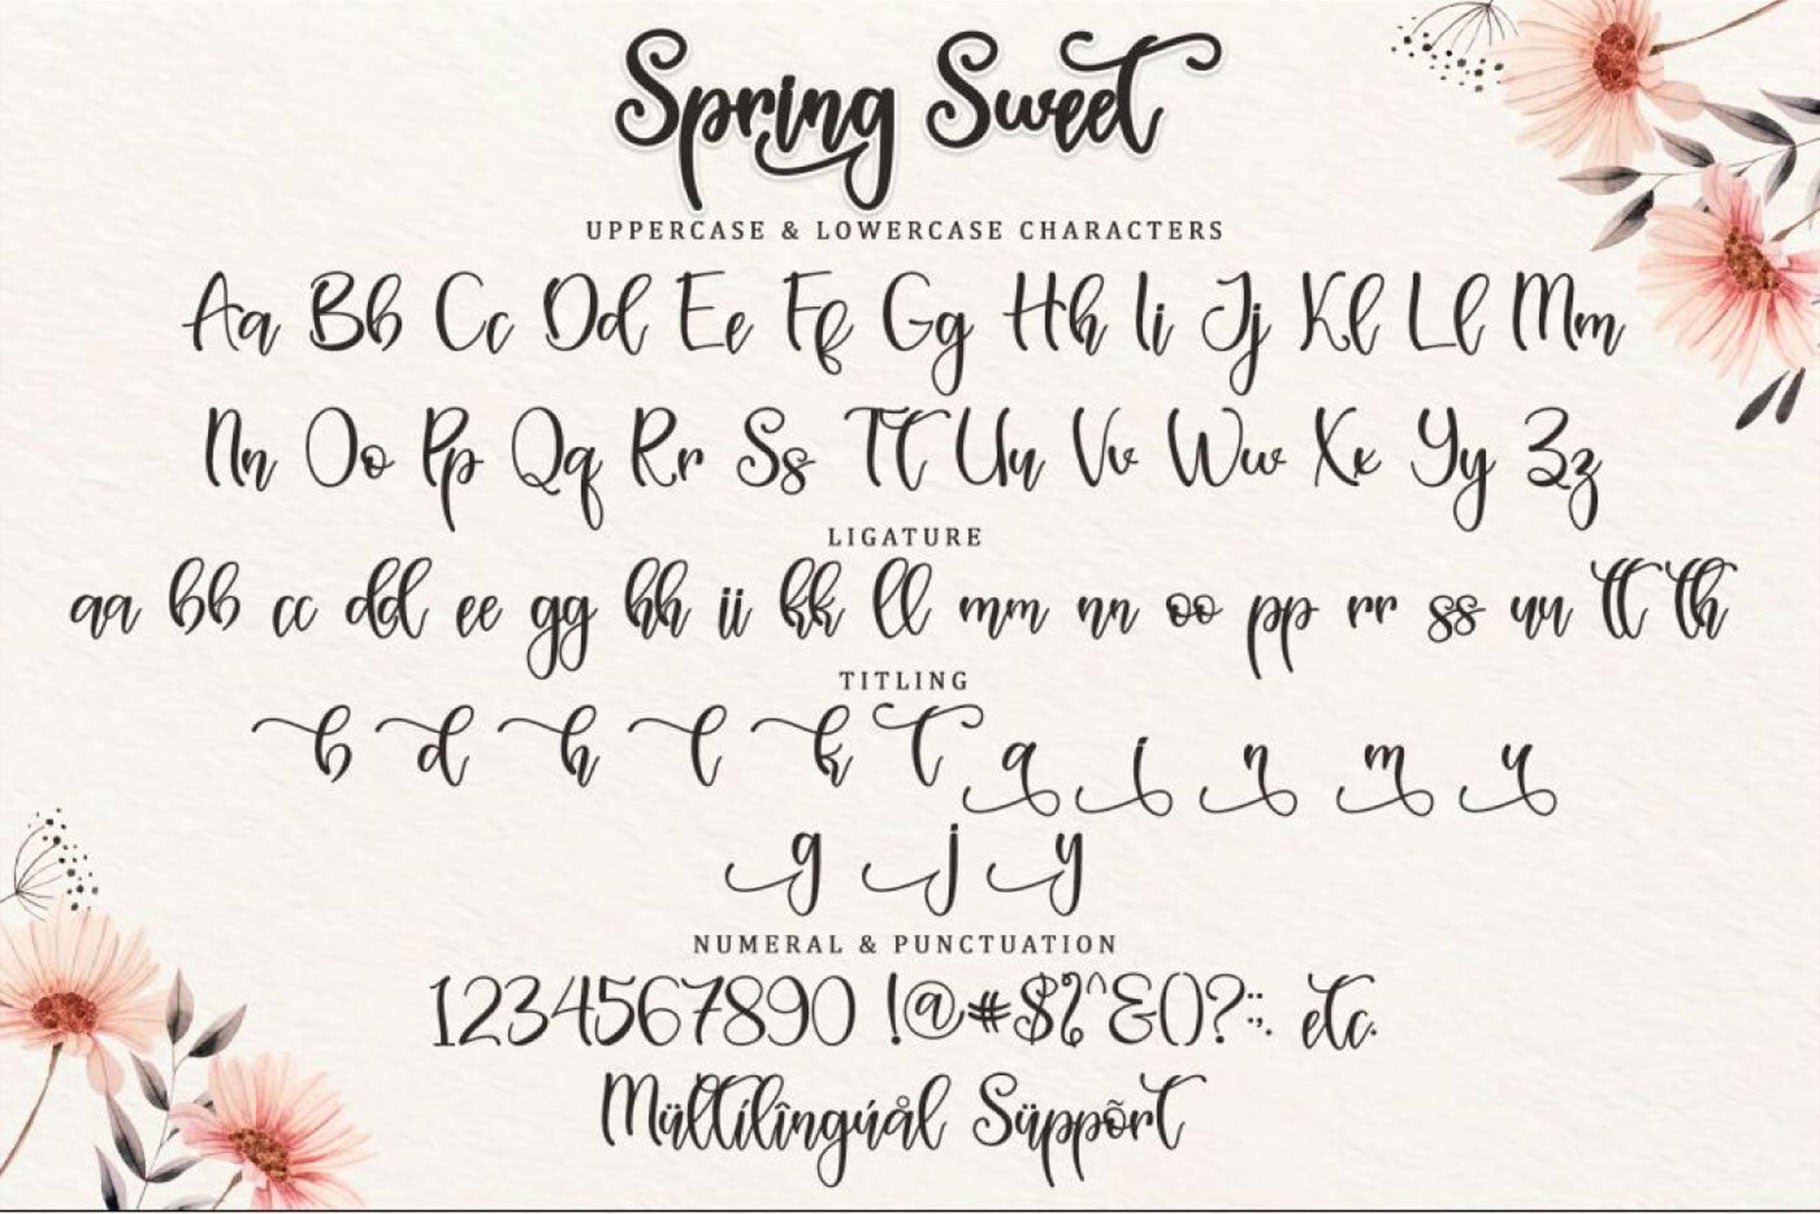 Spring Sweet
UPPERCASE & LOWERCASE CHARACTERS
Aa Bb Cc Dd Ee Ff Gg Hh Ii Jj Kl Ll Mm
Nn Oo Pp Qq Rr Ss Tt Uu Vv Ww Xx Yy Zz
LIGATURE
aa bb cc dd ee gg hh ii kk ll mm nn oo pp rr ss uu tt th
TITLING
b d h l k t a i n m u
g j y
NUMERAL & PUNCTUATION
1234567890 !@#$%^&()?:;,. etc.
Mültílîngúål Süppõrt